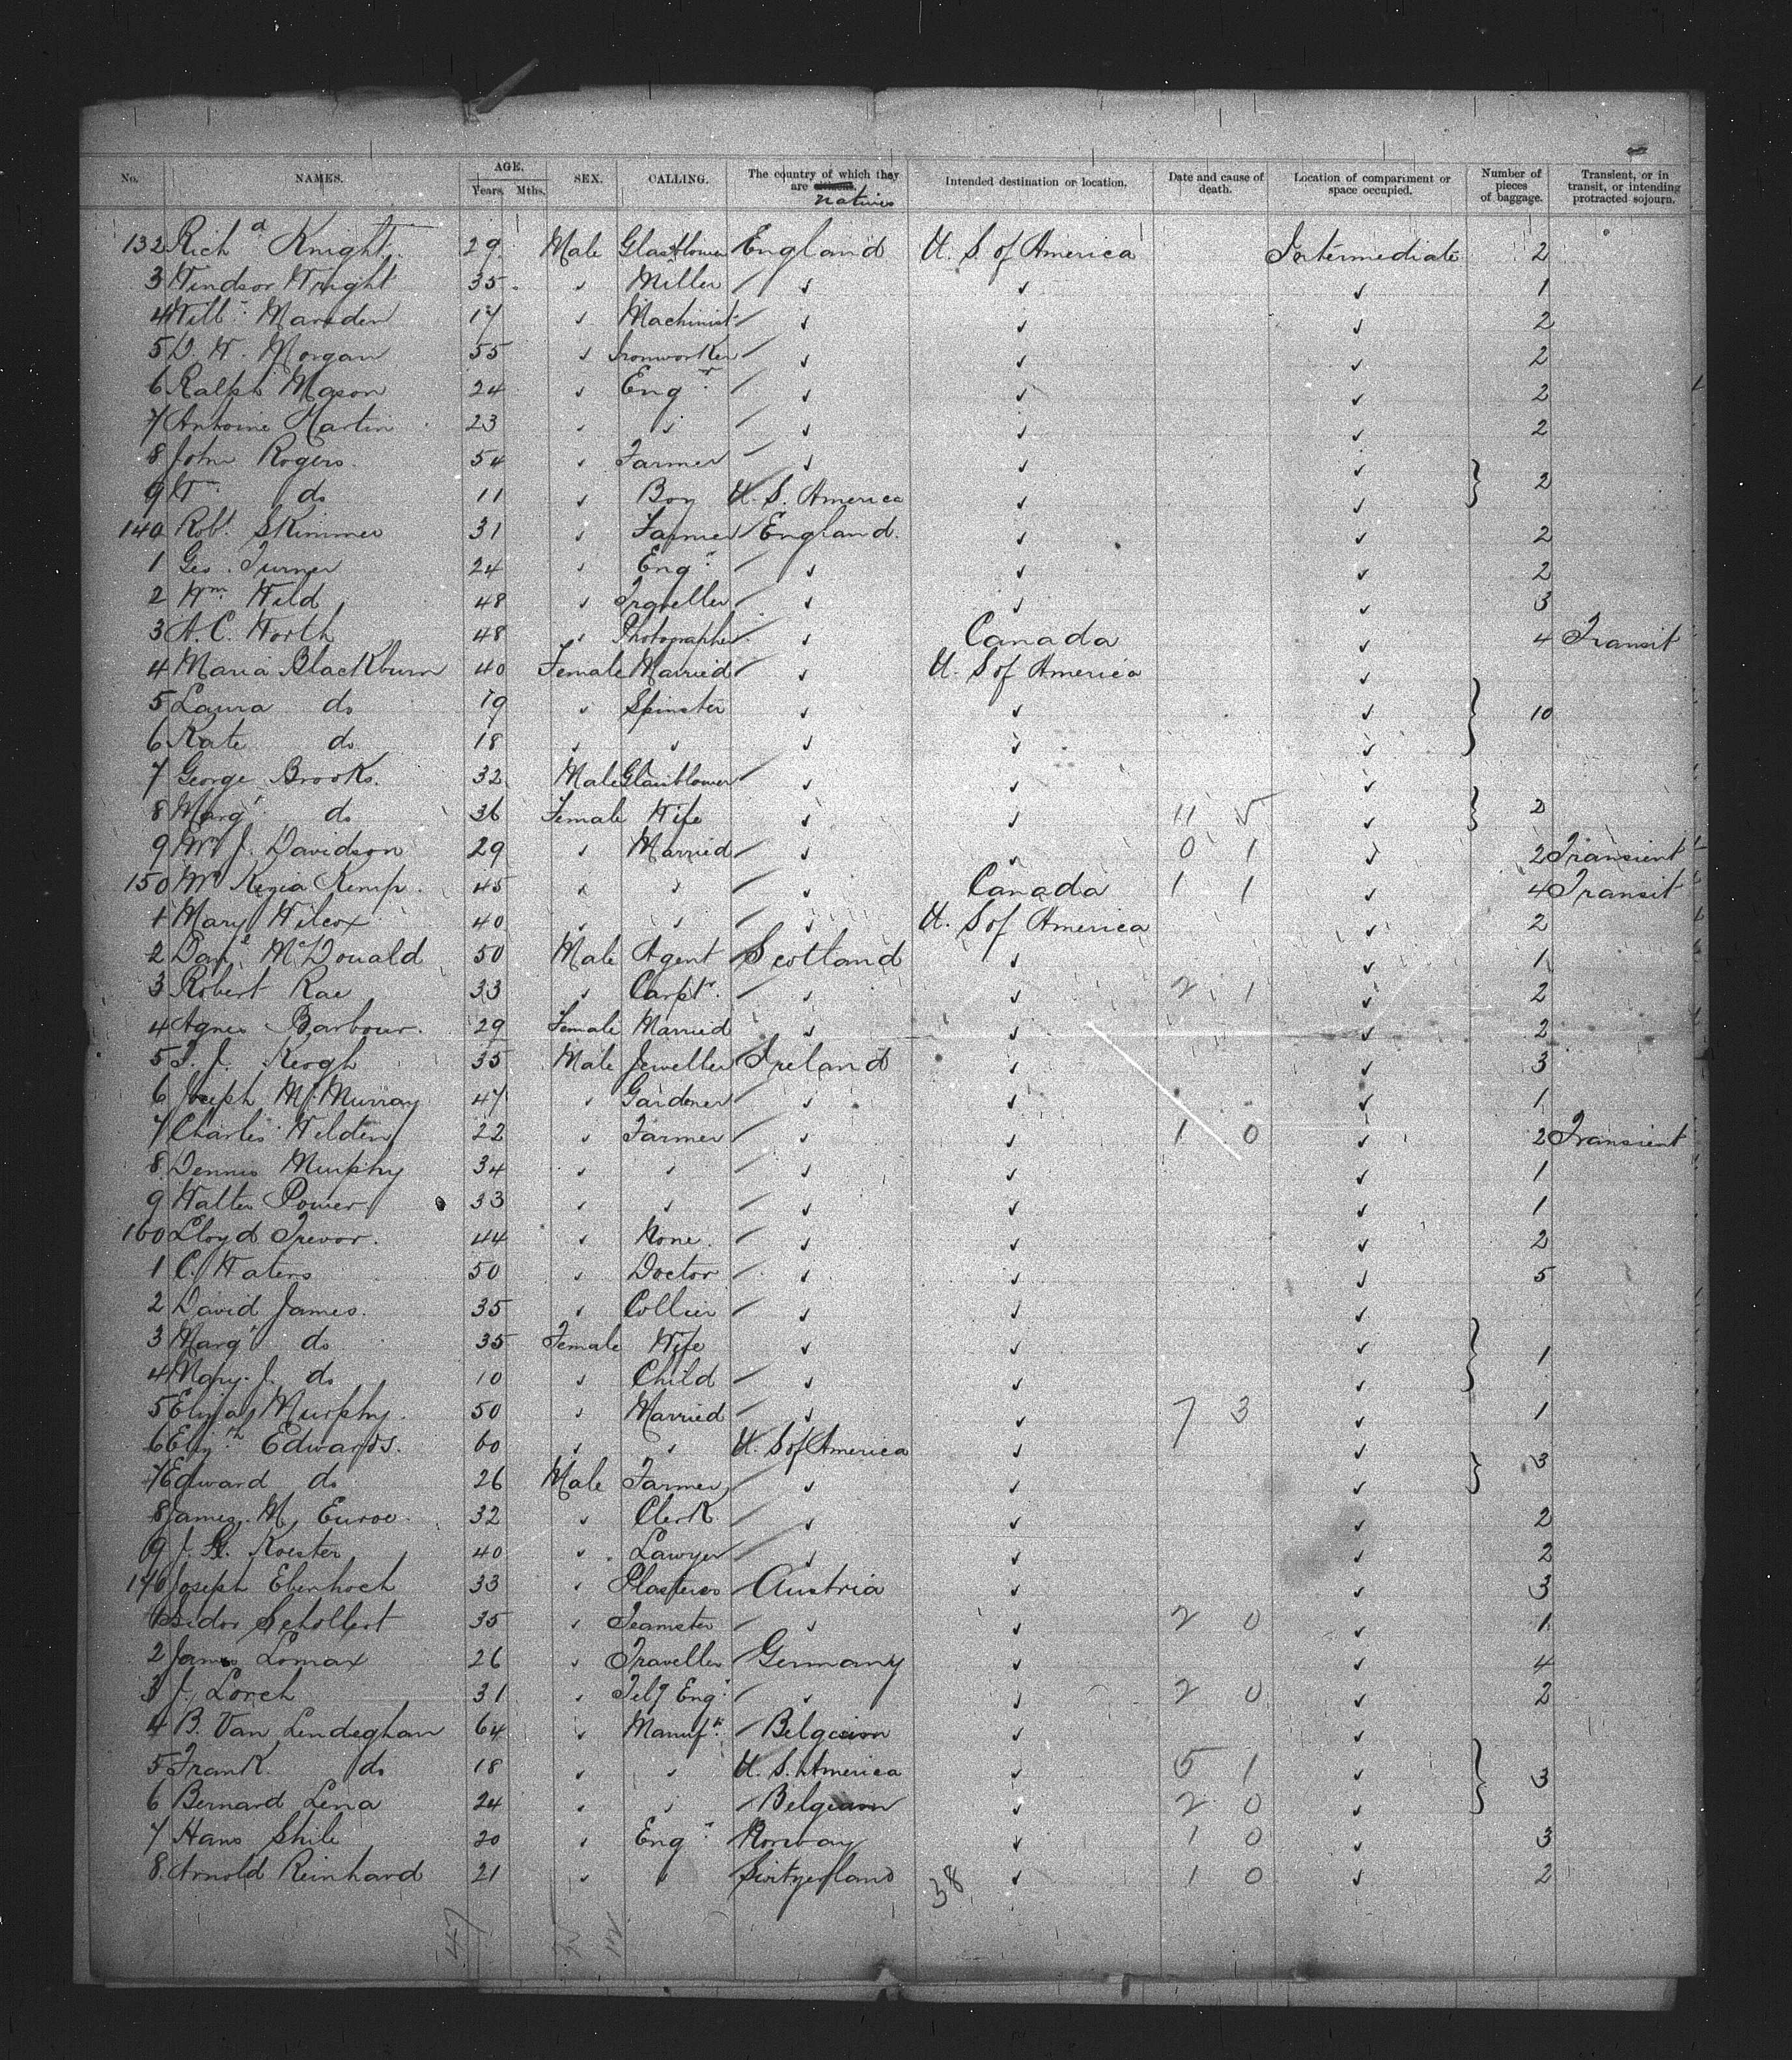 No. NAMES. AGE. Years. Mths. SEX. CALLING. The country of which they are natives Intended destination or location. Date and cause of death. Location of compartment or space occupied. Number of pieces of baggage. Transient, or in transit, or intending protracted sojourn.
132 Richd Knight. 29 Male Glassblower England U. S. of America Intermediate 2
3 Windsor Wright 35 ✓ Miller ✓ ✓ ✓ 1
4 Willm Marsden 17 ✓ Machinist ✓ ✓ ✓ 2
5 D. W. Morgan 55 ✓ Ironworker ✓ ✓ ✓ 2
6 Ralph Mason 24 ✓ Engr ✓ ✓ ✓ 2
7 Antoine Martin 23 ✓ ✓ ✓ ✓ ✓ 2
8 John Rogers 54 ✓ Farmer ✓ ✓ ✓
9 W. do 11 ✓ Boy U. S. America ✓ ✓ } 2
140 Robt Skinner 31 ✓ Farmer England. ✓ ✓ 2
1 Geo. Turner 24 ✓ Engr ✓ ✓ ✓ 2
2 Wm Wild 48 ✓ Traveller ✓ ✓ ✓ 3
3 A. C. North 48 ✓ Photographer ✓ Canada ✓ 4 Transit
4 Maria Blackburn 40 Female Married ✓ U. S of America ✓
5 Laura do 19 ✓ Spinster ✓ ✓ ✓ } 10
6 Kate do 18 ✓ ✓ ✓ ✓ ✓
7 George Brooks. 32 Male Glassblower ✓ ✓ ✓
8 Margt do 36 Female Wife ✓ ✓ 11 5 ✓ } 2
9 Mrs J. Davidson 29 ✓ Married ✓ ✓ 0 1 ✓ 2 Transient
150 Mrs Kezia Kemp. 45 ✓ ✓ ✓ Canada 1 1 ✓ 4 Transit
1 Mary Wilcox 40 ✓ ✓ ✓ U. S of America ✓ 2
2 Danl McDonald 50 Male Agent Scotland ✓ ✓ 1
3 Robert Rae 33 ✓ Carptr. ✓ ✓ 2 1 ✓ 2
4 Agnes Barbour. 29 Female Married ✓ ✓ ✓ 2
5 Keogh 35 Male Jeweller Ireland ✓ ✓ 3
6 Joseph McMurray 47 ✓ Gardener ✓ ✓ ✓ 1
7 Charles Welden 22 ✓ Farmer ✓ ✓ 1 0 ✓ 2 Transient
8 Dennis Murphy 34 ✓ ✓ ✓ ✓ ✓ 1
9 Walter Power 33 ✓ ✓ ✓ ✓ ✓ 1
160 Lloyd Trevor. 44 ✓ None. ✓ ✓ ✓ 2
1 C. Waters 50 ✓ Doctor ✓ ✓ ✓ 5
2 David James. 35 ✓ Collier ✓ ✓ ✓
3 Margt do 35 Female Wife ✓ ✓ ✓ } 1
4 Mary. J. do 10 ✓ Child ✓ ✓ ✓
5 Eliza Murphy. 50 ✓ Married ✓ ✓ 7 3 ✓ 1
6 Elizth Edwards. 60 ✓ ✓ U. S of America ✓ ✓
7 Edward do 26 Male Farmer ✓ ✓ ✓ } 3
8 James. M. 32 ✓ Clerk ✓ ✓ ✓ 2
9 J. Koester 40 ✓ Lawyer ✓ ✓ ✓ 2
170 Joseph Eberhoch 33 ✓ Plasterer Austria ✓ ✓ 3
1 Isidor Schollert 35 ✓ Teamster ✓ ✓ 2 0 ✓ 1
2 James Lomax 26 ✓ Traveller Germany ✓ ✓ 4
3 J. Lorch 31 ✓ Telg Engr ✓ ✓ 2 0 ✓ 2
4 B. Van Lendeghan 64 ✓ Manufr. Belgium ✓ ✓
5 Frank do 18 ✓ ✓ U. S. America ✓ 5 1 ✓ } 3
6 Bernard Lena 24 ✓ ✓ Belgium ✓ 2 0 ✓
7 Hans Shile 20 ✓ Engr Norway ✓ 1 0 ✓ 3
8 Arnold Reinhard 21 ✓ ✓ Switzerland 38 ✓ 1 0 ✓ 2
47